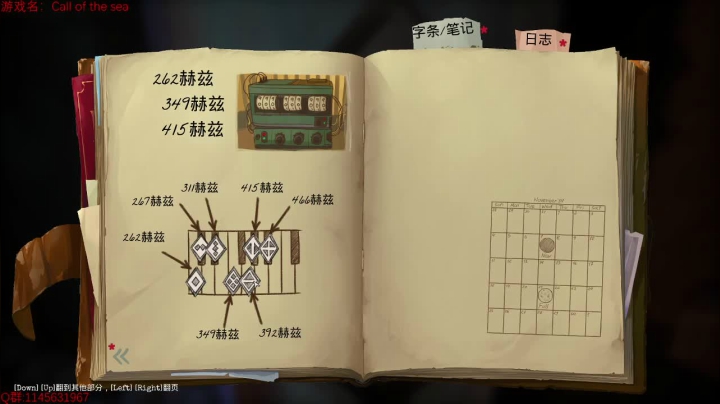 游戏名：Call of the sea
字条/笔记
日志
262赫兹
349赫兹
415赫兹
311赫兹
415赫兹
267赫兹
466赫兹
262赫兹
349赫兹
392赫兹
[Down] [Up]翻到其他部分，[Left] [Right]翻页
Q群:1145631967